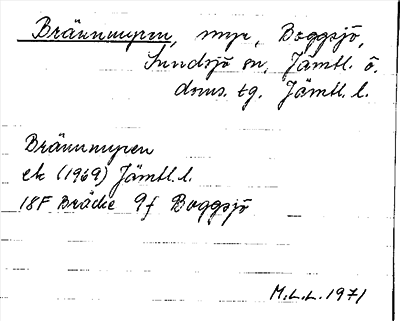 Brännmyren, myr, Boggsjö,
Sundsjö sn, Jämtl. ö.
doms. tg. Jämtl. l.
Brännmyren
ek (1969) Jämtl. l.
18F Bräcke 9f Boggsjö
M.L.L. 1971